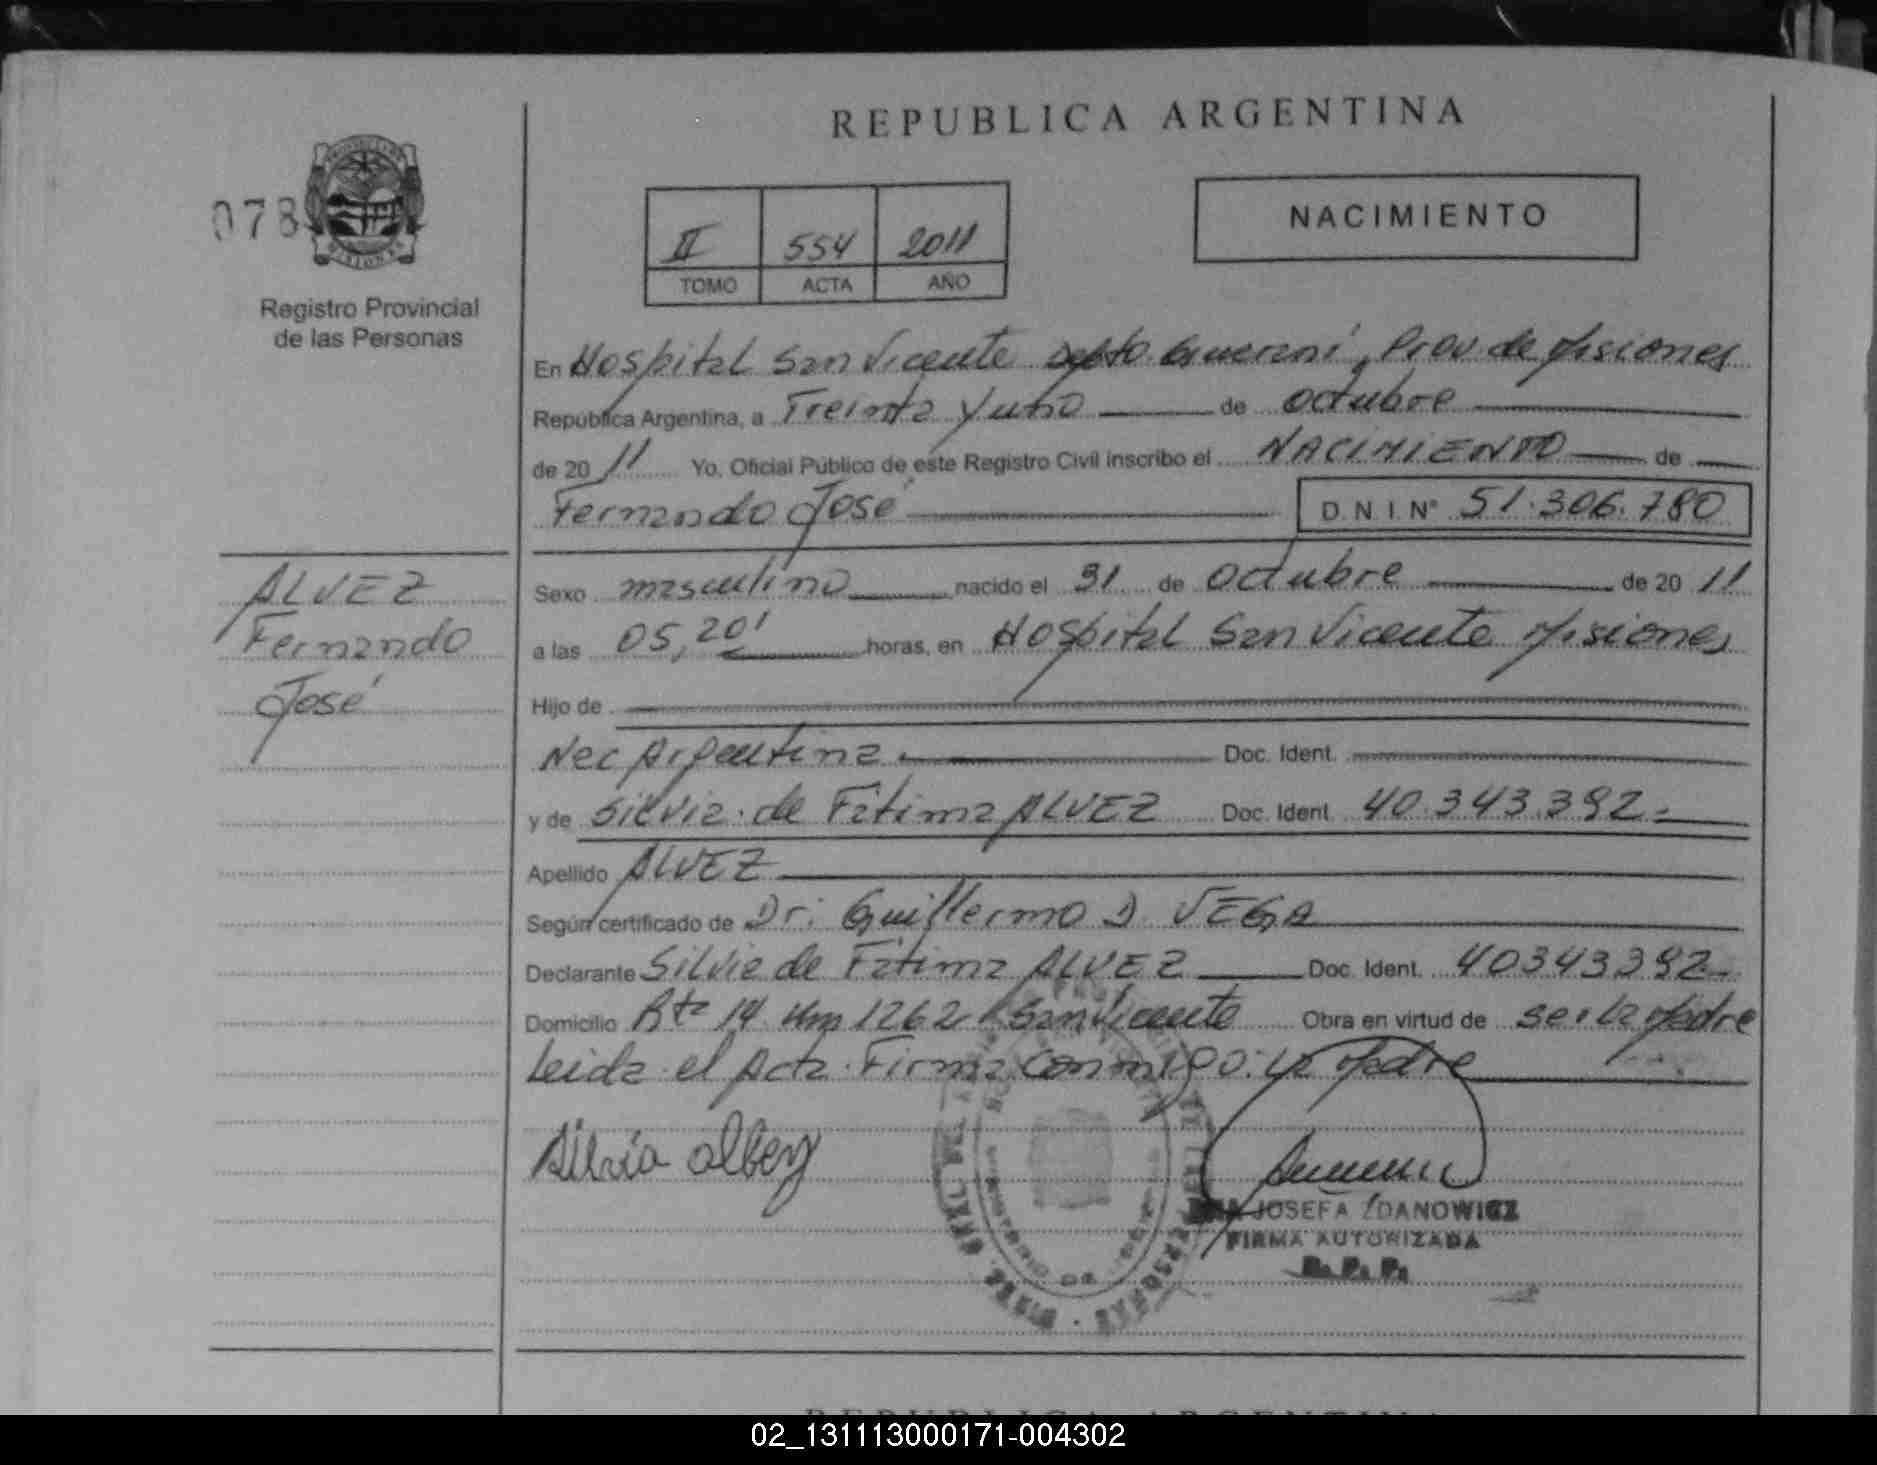 REPUBLICA ARGENTINA
078
II 554 2011
TOMO ACTA AÑO
NACIMIENTO
Registro Provincial
de las Personas
En Hospital San Vicente Depto. Guaraní, Prov. de Misiones
República Argentina, a Treinta y uno de octubre
de 20 11 Yo, Oficial Público de este Registro Civil inscribo el NACIMIENTO de
Fernando José D N I Nº 51.306.780
ALVEZ
Fernando
José
Sexo masculino nacido el 31 de octubre de 20 11
a las 05,20' horas, en Hospital San Vicente Misiones
Hijo de
Nac Argentina Doc. Ident.
y de Silvia de Fátima ALVEZ Doc. Ident. 40.343.392
Apellido ALVEZ
Según certificado de Dr. Guillermo D. VEGA
Declarante Silvia de Fátima ALVEZ Doc. Ident. 40343392
Domicilio Rta 14 Km 1262 San Vicente Obra en virtud de ser la Madre
Leida el Acta Firma conmigo: La Madre
Silvia
JOSEFA ZDANOWICZ
FIRMA AUTORIZADA
R. P. P.
REPUBLICA ARGENTINA
02_131113000171-004302